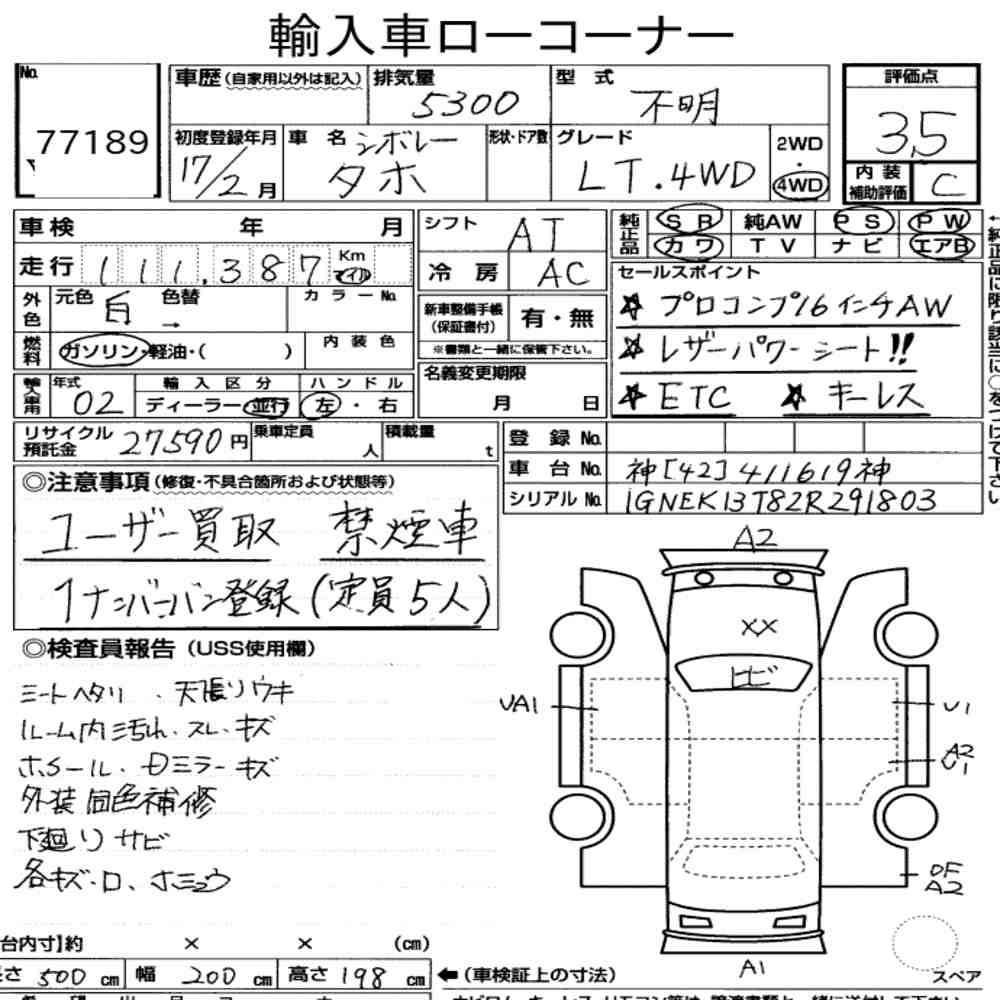 輸入車ローコーナー
No. 77189
車歴(自家用以外は記入) 排気量 5300 型式 不明 評価点 3.5
初度登録年月 17/2月 車名 シボレー タホ 形状・ドア数 グレード LT.4WD 2WD・4WD 内装補助評価 C
車検 年 月 シフト AT 純正品 SR 純AW PS PW
走行 111,387 Km マイル 冷房 AC カワ TV ナビ エアB
外色 元色 白 色替 → カラーNo. 新車整備手帳(保証書付) 有・無
セールスポイント
☆プロコンプ16インチAW
☆レザーパワーシート!!
☆ETC ☆キーレス
燃料 ガソリン・軽油・( ) 内装色 ※書類と一緒に保管下さい。
輸入車用 年式 02 輸入区分 ディーラー・並行 ハンドル 左・右 名義変更期限 月 日
←純正品に限り該当に○をつけて下さい
リサイクル預託金 27590円 乗車定員 人 積載量 t
登録No.
車台No. 神[42]411619神
シリアルNo. 1GNEK13T82R291803
◎注意事項(修復・不具合箇所および状態等)
ユーザー買取 禁煙車
1ナンバーバン登録(定員5人)
◎検査員報告(USS使用欄)
シートヘタリ、天張リウキ
ルーム内汚れ・スレ・キズ
ホイール・Dミラーキズ
外装同色補修
下廻リサビ
各キズ・ロ、ホミュウ
A2
XX
ヒビ
UA1 U1
A2
U1
OF
A2
A1
スペア
台内寸]約 × × (cm)
長さ 500 cm 幅 200 cm 高さ 198 cm ←(車検証上の寸法)